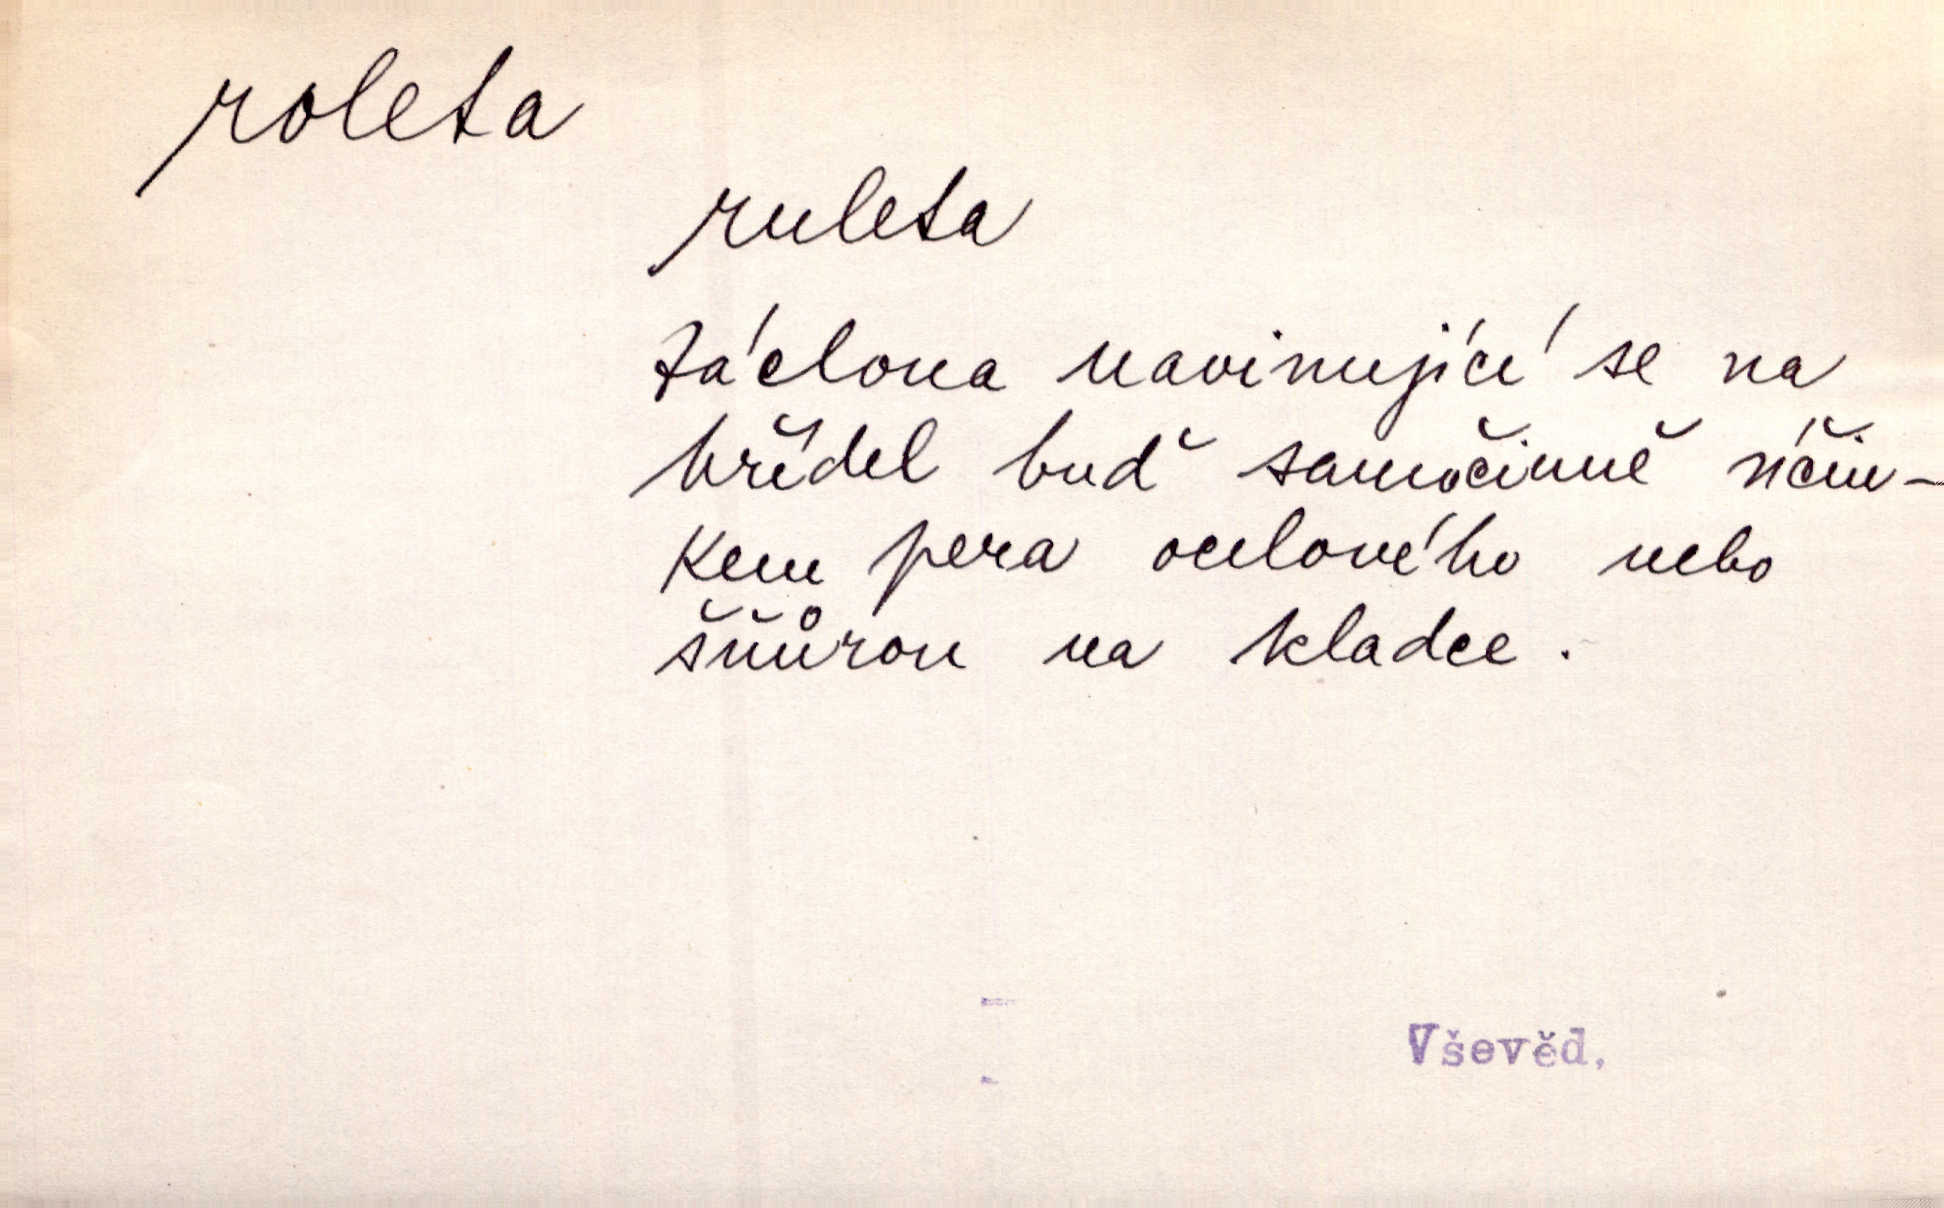 roleta
ruleta
záclona navinující se na
hřídel buď samočinně účin-
kem pera ocelového nebo
šňůrou na kladce.
Vševěd,